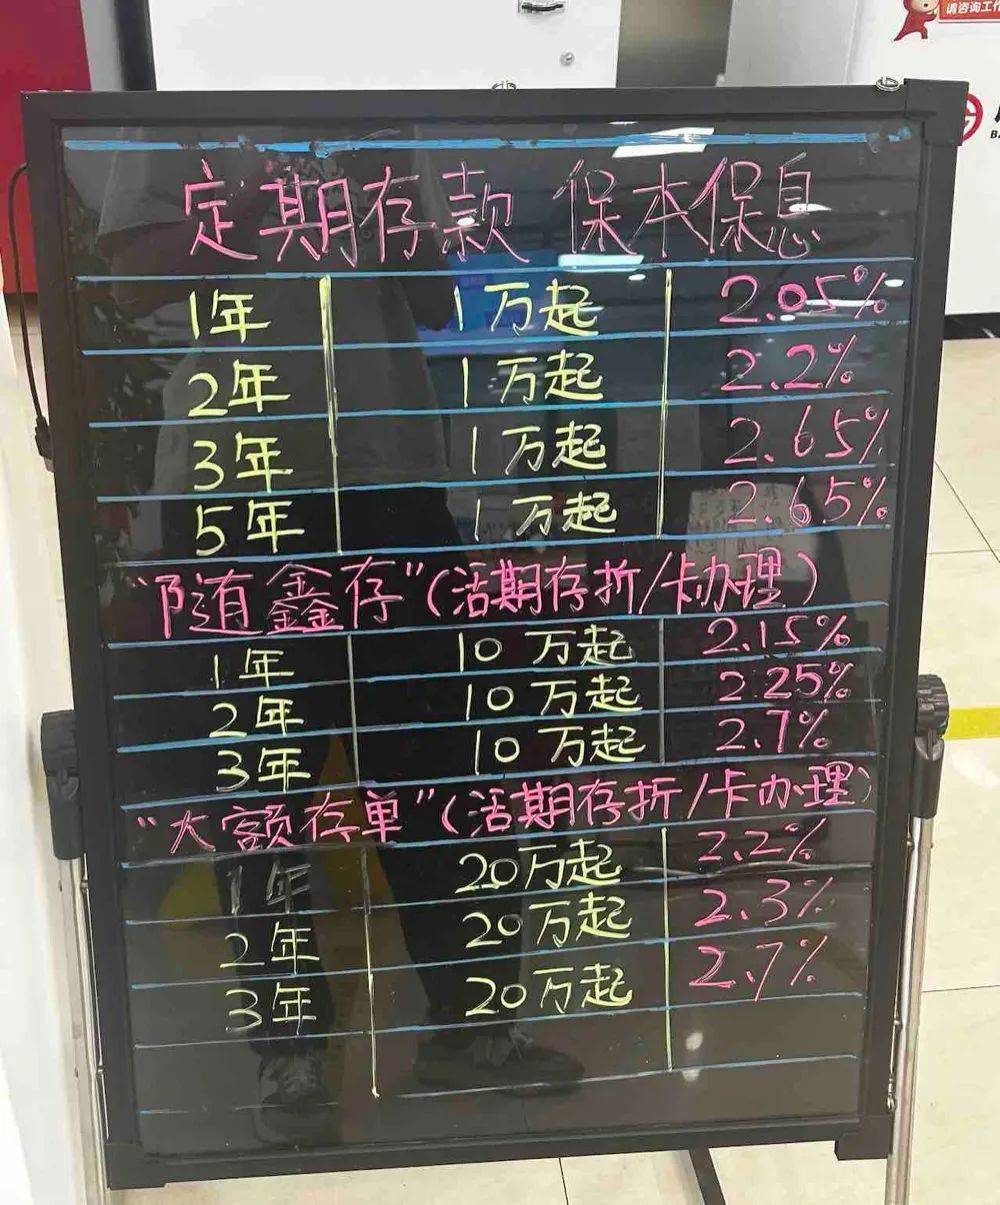 请咨询工作
定期存款 保本保息
1年 1万起 2.05%
2年 1万起 2.2%
3年 1万起 2.65%
5年 1万起 2.65%
“随鑫存”(活期存折/卡办理)
1年 10万起 2.15%
2年 10万起 2.25%
3年 10万起 2.7%
“大额存单”(活期存折/卡办理)
1年 20万起 2.2%
2年 20万起 2.3%
3年 20万起 2.7%